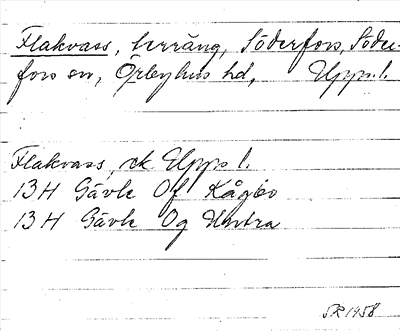 Flakvass, terräng, Söderfors, Söder-
fors sn, Örbyhus hd, Upps. l.
Flakvass, ek Upps l.
13 H Gävle Of Kågbo
13 H Gävle Og Untra
SR 1958